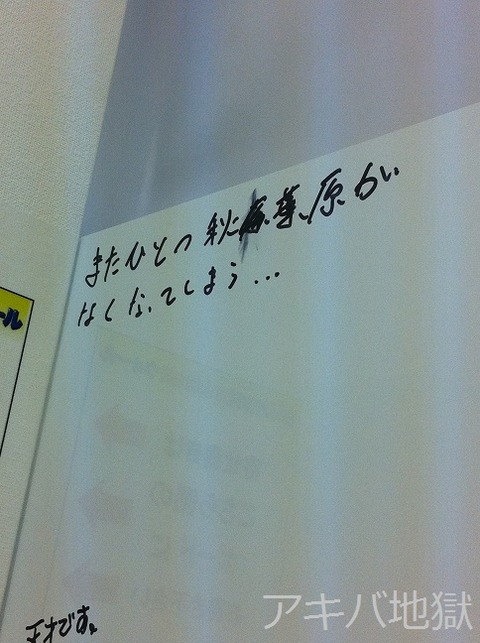 またひとつ 秋葉原が
なくなってしまう...
ール
です。
アキバ地獄